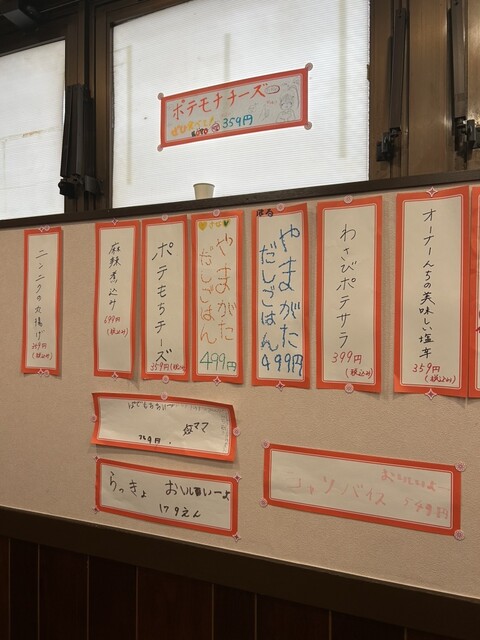 ポテモチチーズ
359円
ニンニクの丸揚げ
麻辣煮込み
499円
(税込み)
ポテもちチーズ
359円(税込み)
やまがた
だしごはん
499円
やまがた
だしごはん
499円
わさびポテサラ
399円
(税込み)
オーナーんちの美味しい塩辛
359円
(税込み)
ママ
らっきょ おいしぃーよ
179えん
おいしいよ
599円